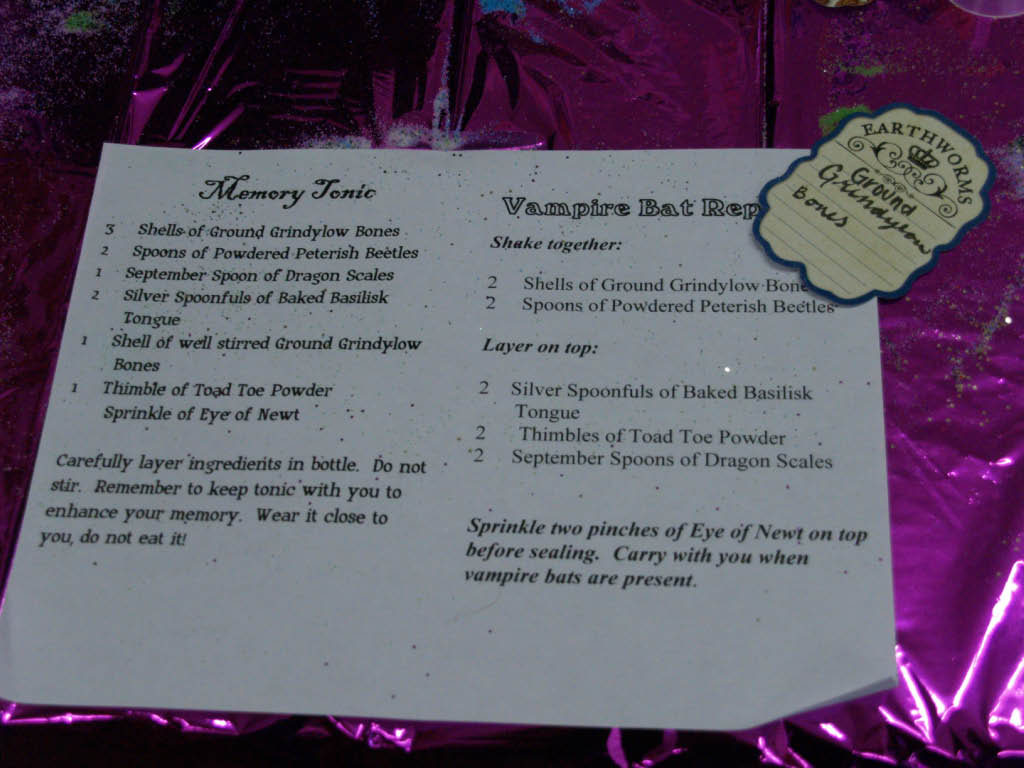 Memory Tonic
3 Shells of Ground Grindylow Bones
2 Spoons of Powdered Peterish Beetles
1 September Spoon of Dragon Scales
2 Silver Spoonfuls of Baked Basilisk
Tongue
1 Shell of well stirred Ground Grindylow
Bones
1 Thimble of Toad Toe Powder
Sprinkle of Eye of Newt
Carefully layer ingredients in bottle. Do not
stir. Remember to keep tonic with you to
enhance your memory. Wear it close to
you, do not eat it!
Vampire Bat Rep
Shake together:
2 Shells of Ground Grindylow Bone
2 Spoons of Powdered Peterish Beetles
Layer on top:
2 Silver Spoonfuls of Baked Basilisk
Tongue
2 Thimbles of Toad Toe Powder
2 September Spoons of Dragon Scales
Sprinkle two pinches of Eye of Newt on top
before sealing. Carry with you when
vampire bats are present.
EARTHWORMS
Ground
Grindylow
Bones